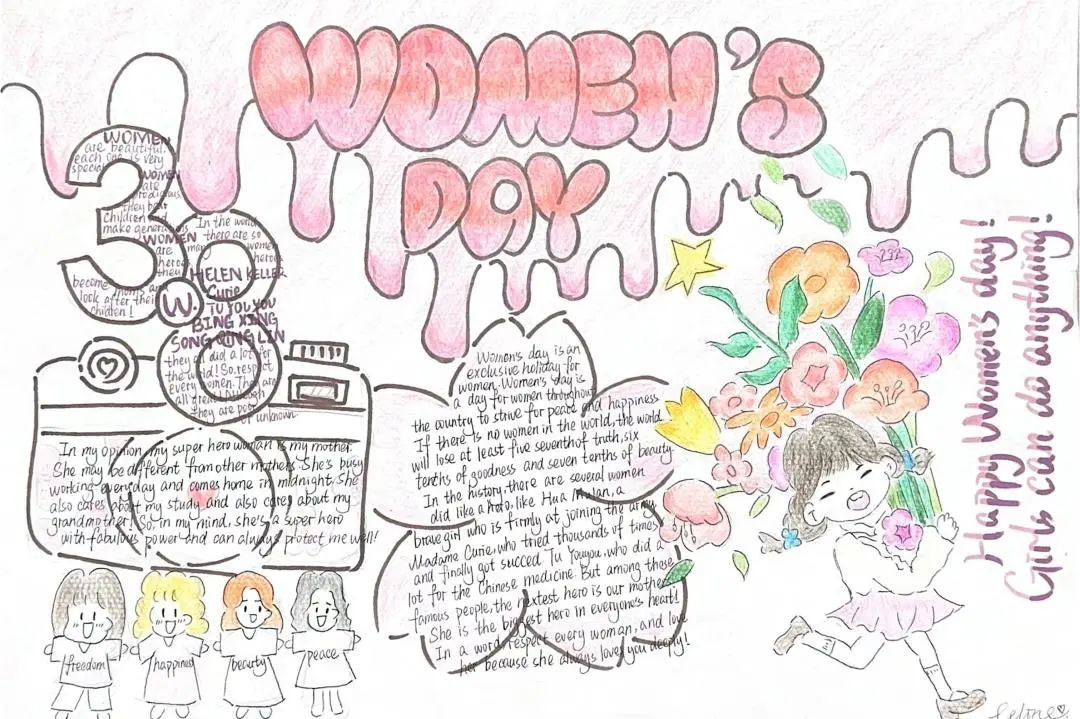 WOMEN'S
DAY
WOMEN
are beautiful,
each one is very
special
WOMEN
are
they
children and
make generations
WOMEN
are
heroes
they
become moms and
look after their
children!
W.
In the world
there are so
many women
heroes
HELEN KELLER
Curie
TU YOU YOU
BING XING
SONG QING LIN
they all did a lot for
the world! So, respect
every women. They are
all great! Although
they are poor
or unknown.
In my opinion, my super hero woman is my mother.
She may be different from other mothers. She's busy
working everyday and comes home in midnight. She
also cares about my study, and also cares about my
grandmother! So, in my mind, she's a super hero
with fabulous power and can always protect me well!
freedom
happines
beauty
peace
Women's day is an
exclusive holiday for
women. Women's day is
a day for women throughout
the country to strive for peace and happiness
If there is no women in the world, the world
will lose at least five seventh of truth, six
tenths of goodness and seven tenths of beauty.
In the history, there are several women
did like a hero, like Hua Mulan, a
brave girl who is firmly at joining the army
Madame Curie, who tried thousands of times
and finally got succed. Tu Youyou, who did a
lot for the Chinese medicine. But among those
famous people, the nextest hero is our mother
She is the biggest hero in everyone's heart!
In a word, respect every woman, and love
her because she always loves you deeply!
Happy Women's day!
Girls can do anything!